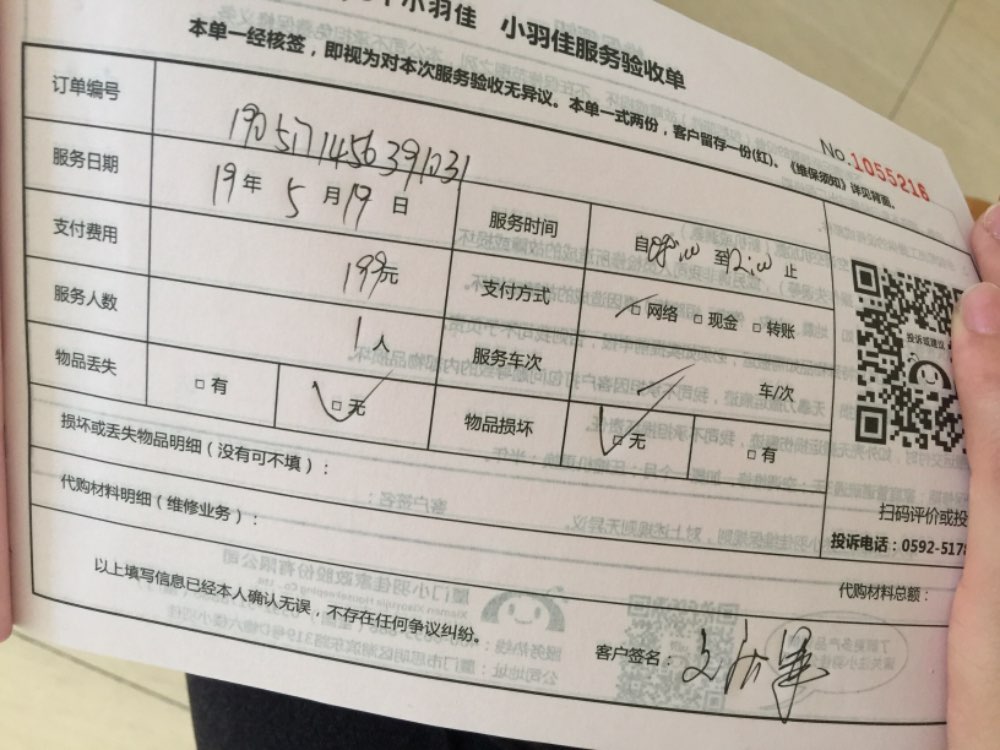 小羽佳 小羽佳服务验收单
本单一经核签，即视为对本次服务验收无异议。本单一式两份，客户留存一份(红)。《维保须知》详见背面。
No.1055216
订单编号
服务日期 19年 5月19日
服务时间 自 至12:00止
支付费用 199元
支付方式 □网络 □现金 □转账
服务人数 1人
服务车次 车/次
物品丢失 □有 □无
物品损坏 □无 □有
损坏或丢失物品明细（没有可不填）：
代购材料明细（维修业务）：
投诉或建议
扫码评价或投
投诉电话：0592-517
代购材料总额：
以上填写信息已经本人确认无误，不存在任何争议纠纷。
客户签名：